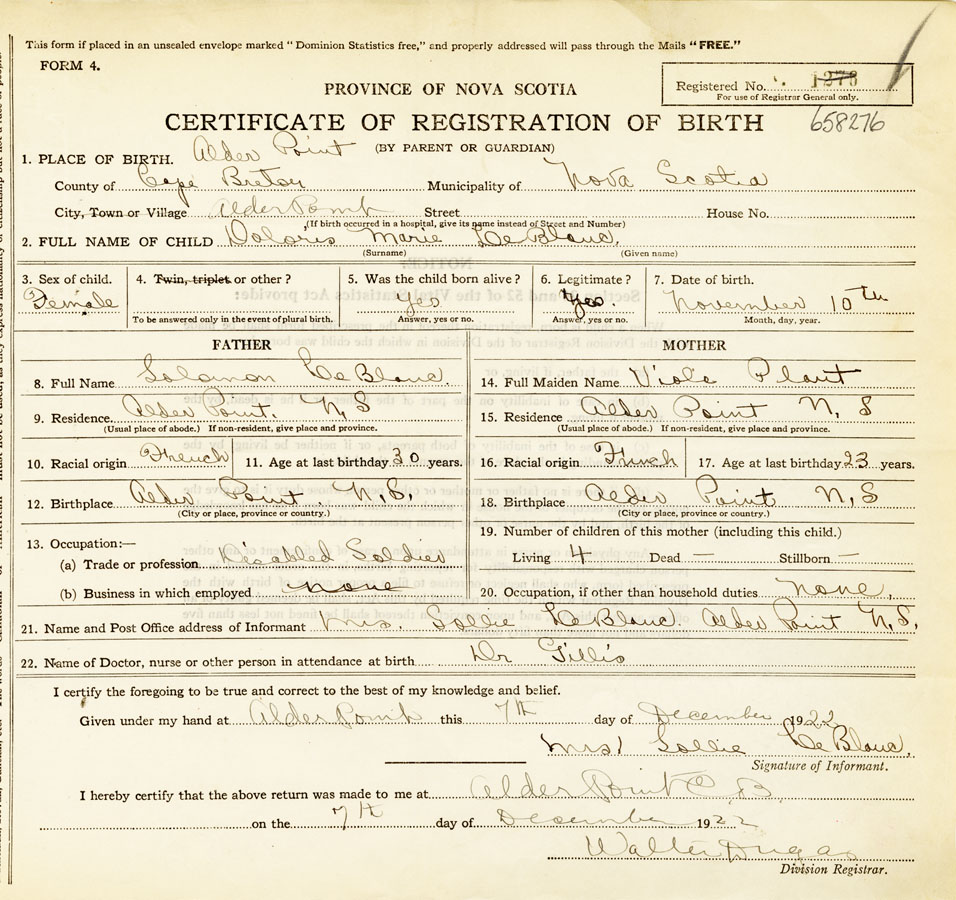 This form if placed in an unsealed envelope marked "Dominion Statistics free," and properly addressed will pass through the Mails "FREE."
FORM 4.
Registered No. 1278
For use of Registrar General only.
PROVINCE OF NOVA SCOTIA
CERTIFICATE OF REGISTRATION OF BIRTH 658276
(BY PARENT OR GUARDIAN)
1. PLACE OF BIRTH. Alder Point
County of Cape Breton Municipality of Nova Scotia
City, Town or Village Alder Point Street House No.
(If birth occurred in a hospital, give its name instead of Street and Number)
2. FULL NAME OF CHILD Doloris Marie LeBlanc.
(Surname) (Given name)
3. Sex of child. 4. Twin, triplet or other? 5. Was the child born alive? 6. Legitimate? 7. Date of birth.
Female Yes Yes November 10th
To be answered only in the event of plural birth. Answer, yes or no. Answer, yes or no. Month, day, year.
FATHER MOTHER
8. Full Name Solomon LeBlanc. 14. Full Maiden Name Viola Plant
9. Residence. Alder Point. N, S 15. Residence Alder Point N, S
(Usual place of abode.) If non-resident, give place and province. (Usual place of abode.) If non-resident, give place and province.
10. Racial origin French 11. Age at last birthday 30 years. 16. Racial origin French 17. Age at last birthday 23 years.
12. Birthplace Alder Point, N.S. 18. Birthplace Alder Point N, S
(City or place, province or country.) (City or place, province or country.)
13. Occupation:— 19. Number of children of this mother (including this child.)
(a) Trade or profession Disabled Soldier Living 4 Dead — Stillborn —
(b) Business in which employed none 20. Occupation, if other than household duties None,
21. Name and Post Office address of Informant Mrs. Sollie LeBlanc. Alder Point N, S,
22. Name of Doctor, nurse or other person in attendance at birth Dr Gillis
I certify the foregoing to be true and correct to the best of my knowledge and belief.
Given under my hand at Alder Point this 7th day of December 1922
Mrs, Sollie LeBlanc,
Signature of Informant.
I hereby certify that the above return was made to me at Alder Point C, B,
on the 7th day of December 1922
Walter Dugas
Division Registrar.